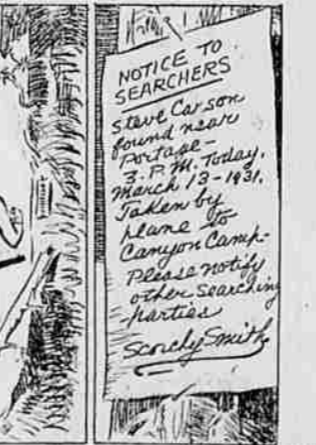 NOTICE TO
SEARCHERS
Steve Carson
found near
Portage-
3. P.M. Today,
March 13-1931.
Taken by
plane to
Canyon Camp-
Please notify
other searching
parties
Scorchy Smith